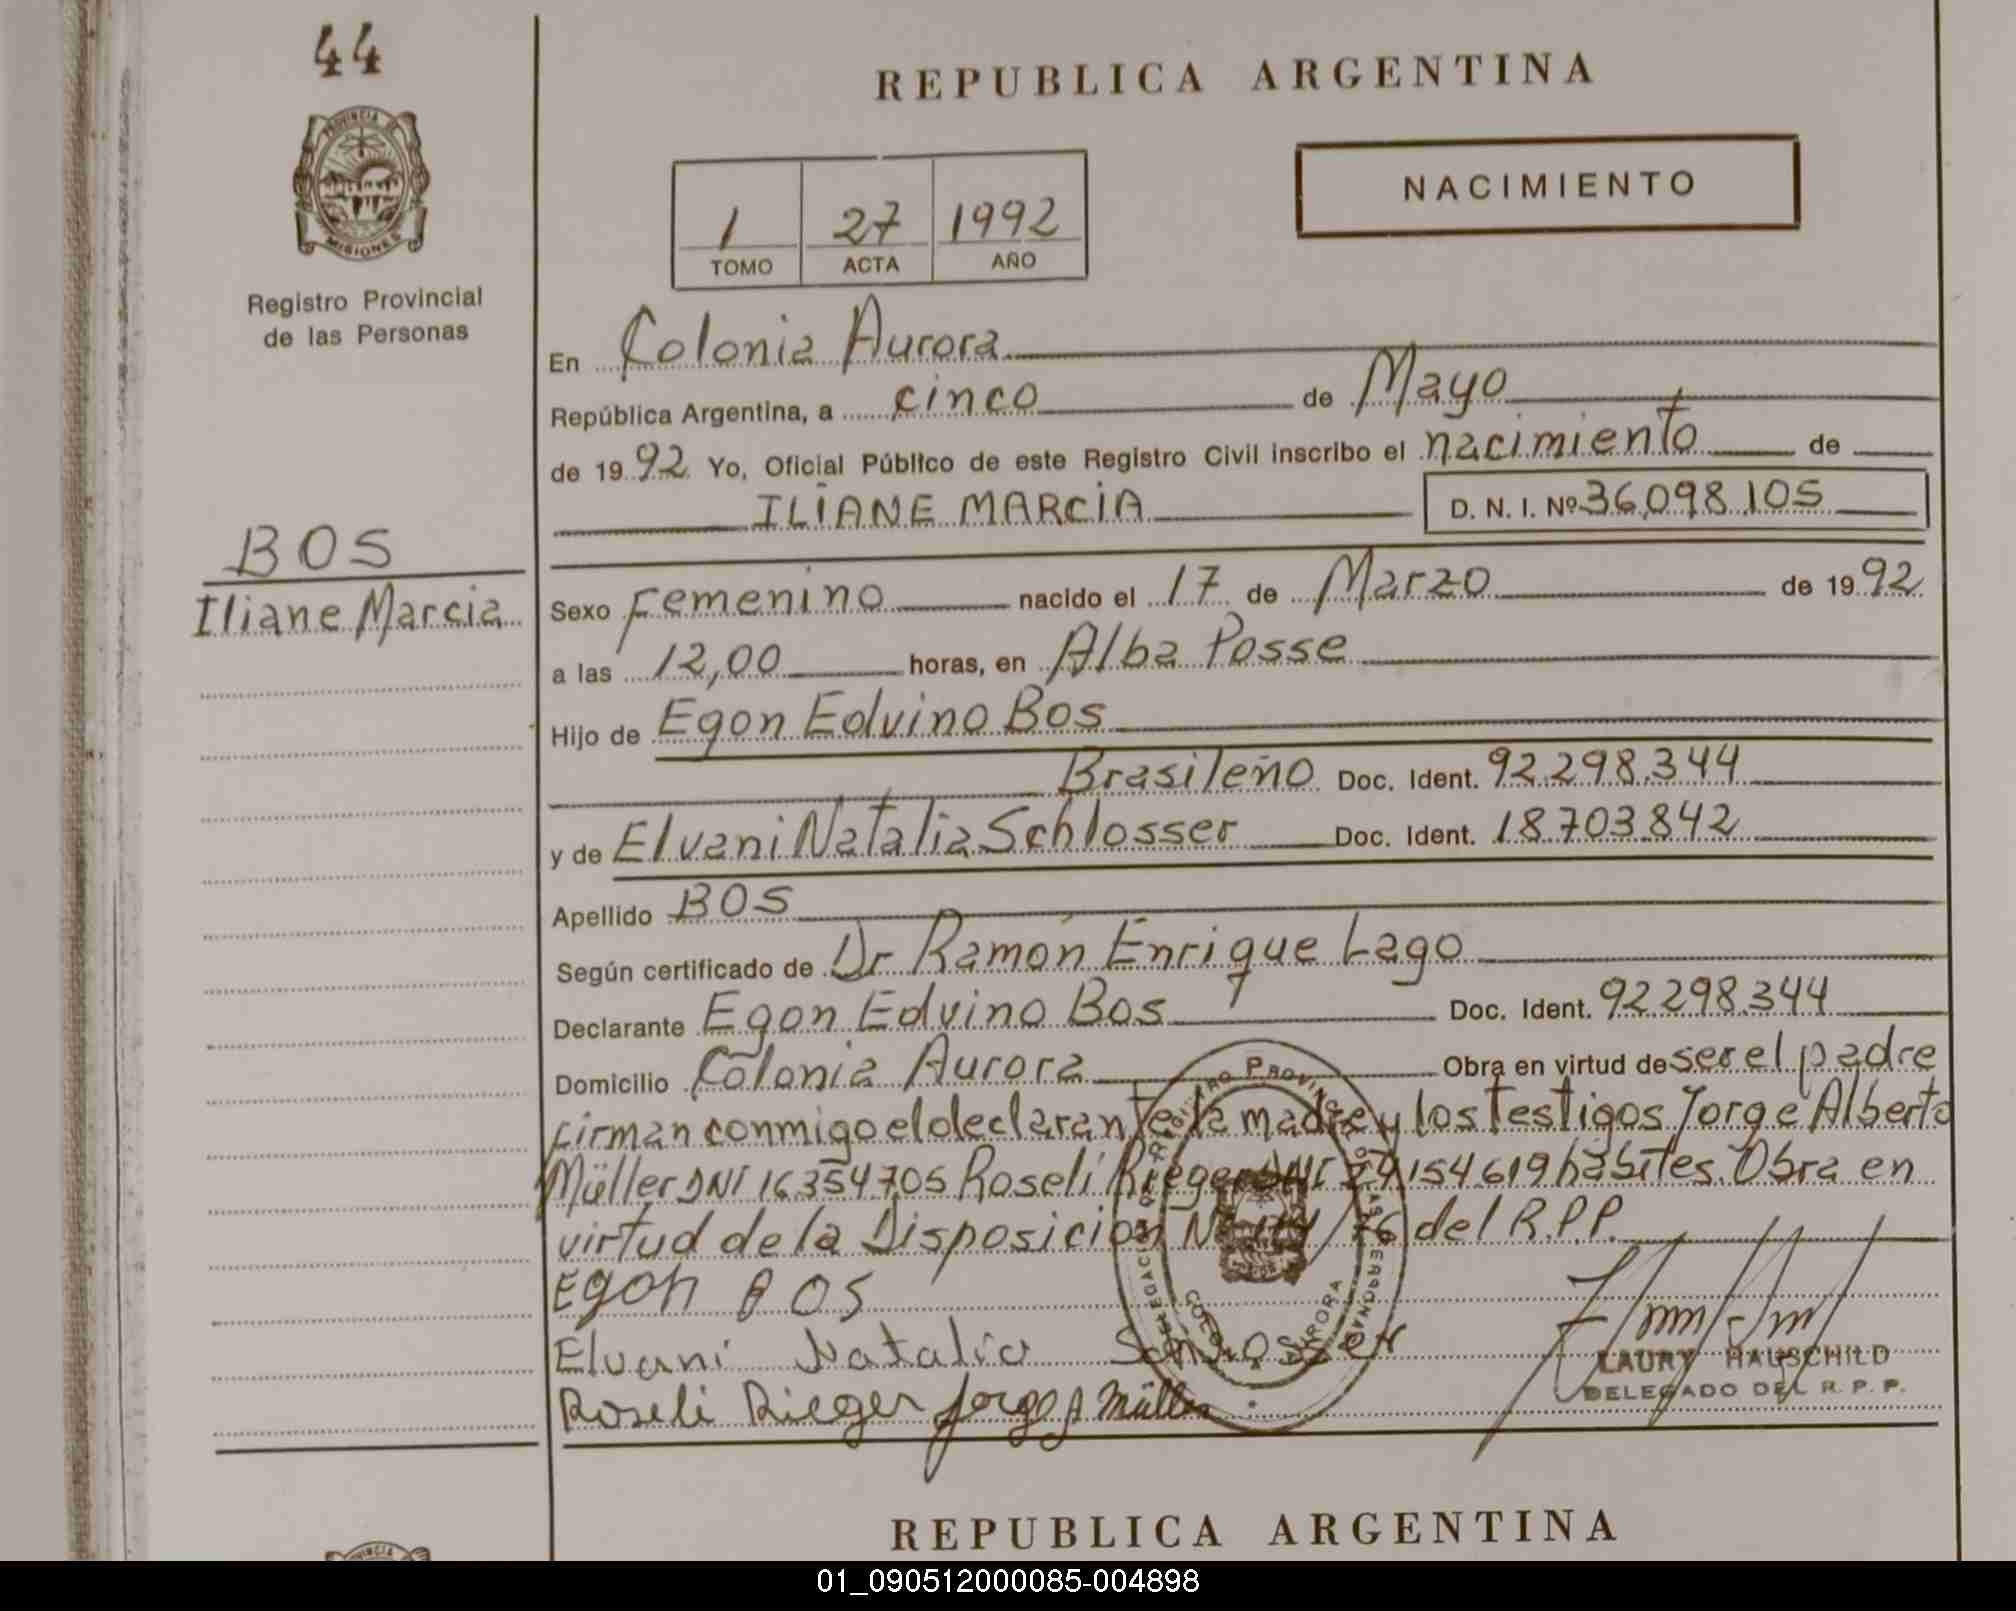 44
PROVINCIA DE
MISIONES
Registro Provincial
de las Personas
BOS
Iliane Marcia
REPUBLICA ARGENTINA
NACIMIENTO
1 27 1992
TOMO ACTA AÑO
En Colonia Aurora
República Argentina, a cinco de Mayo
de 1992 Yo, Oficial Público de este Registro Civil inscribo el nacimiento de
ILIANE MARCIA D. N. I. Nº 36.098.105
Sexo Femenino nacido el 17 de Marzo de 1992
a las 12,00 horas, en Alba Posse
Hijo de Egon Edvino Bos
Brasileño Doc. Ident. 92.298.344
y de Elvani Natalia Schlosser Doc. Ident. 18.703.842
Apellido BOS
Según certificado de Dr Ramón Enrique Lago
Declarante Egon Edvino Bos Doc. Ident. 92.298.344
Domicilio Colonia Aurora Obra en virtud de ser el padre
firman conmigo el declarante la madre y los testigos Jorge Alberto
Müller DNI 16354705 Roseli Rieger DNI 154619 habites. Obra en
virtud de la Disposición Nº /76 del R.P.P.
Egon BOS
Elvani Natalia Schlosser
Roseli Rieger Jorge A Müller
LAURY HAUSCHILD
DELEGADO DEL R. P. P.
REPUBLICA ARGENTINA
01_090512000085-004898